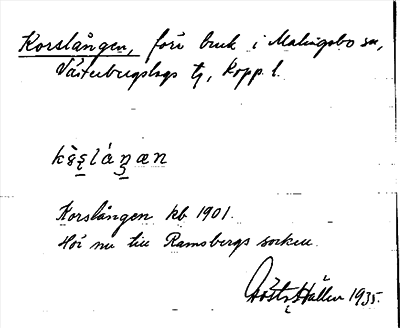 Korslången, förr bruk i Malingsbo sn,
Västerbergslags tg, Kopp. l.
Korslången kb 1901.
Hör nu till Ramsbergs socken.
Gösta Hallin 1935.